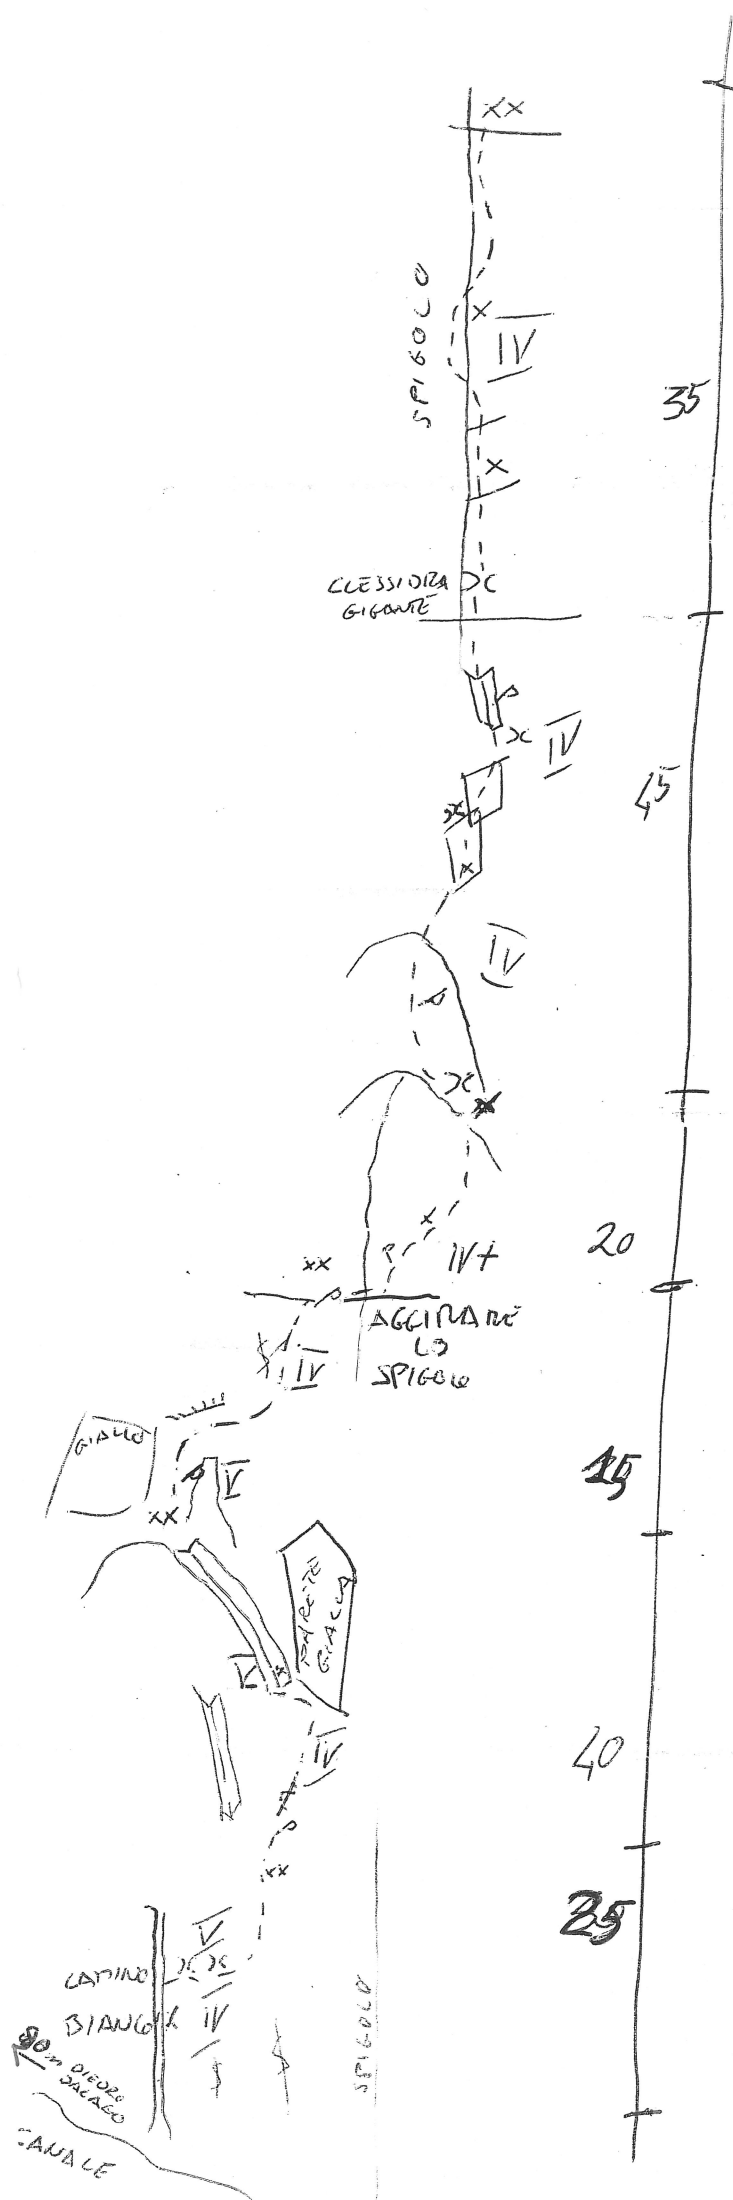 XX
SPIGOLO
X
IV
35
X
CLESSIDRA
GIGANTE
IV
45
X
IV
20
X
XX
IV+
AGGIRARE
LO
SPIGOLO
IV
GIALLO
V
15
XX
PARETE
GIALLA
V
IV
40
XX
V
25
CAMINO
BIANCO
IV
SPIGOLO
80m DIEDRO
CANALE